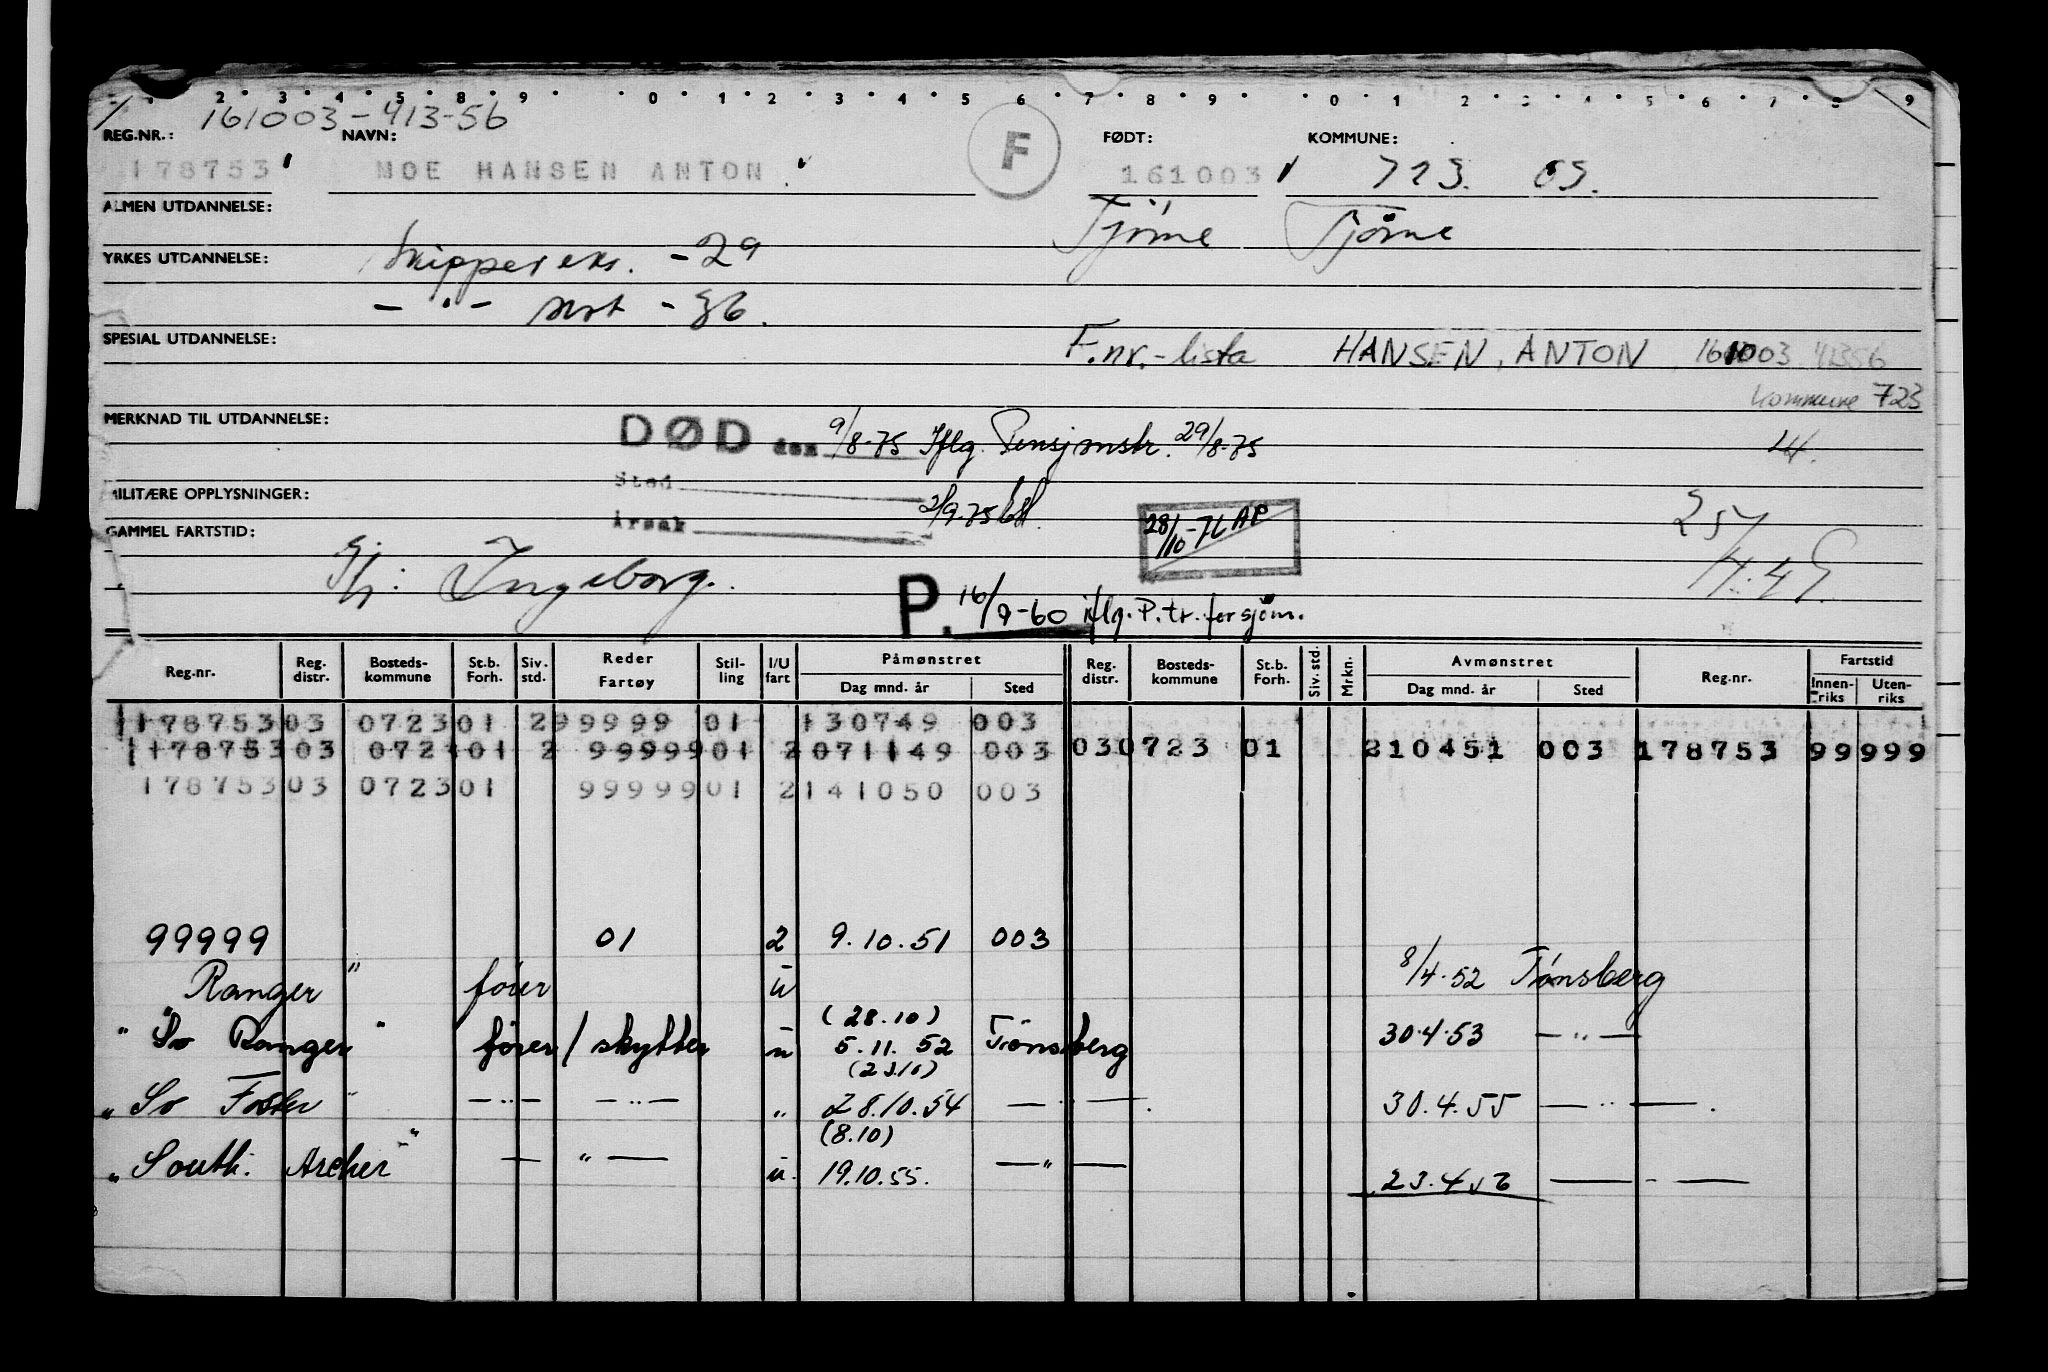 1 2 3 4 5 8 9 0 1 2 3 4 5 6 7 8 9 0 1 2 3 4 5 6 7 8 9
161003-413-56
REG.NR.: NAVN: F FØDT: KOMMUNE:
178753 MOE HANSEN ANTON 161003 723. 03.
ALMEN UTDANNELSE: Tjöme Tjöme
YRKES UTDANNELSE: Skippereks. -29
— " — sert -36.
SPESIAL UTDANNELSE: F.nr.-lista HANSEN, ANTON 161003 41356
Kommune 723
MERKNAD TIL UTDANNELSE: DØD den 9/8-75 Iflg. Pensjonstr. 29/8-75
Sted 2/9-75
MILITÆRE OPPLYSNINGER:
Årsak 28/10-76 AP 25/4.49.
GAMMEL FARTSTID:
Gj: Ingeborg.
P. 16/9-60 iflg. P.tr. for sjöm.
Reg.nr. Reg. distr. Bosteds-kommune St.b. Forh. Siv. std. Reder Fartøy Stil-ling I/U fart Påmønstret Dag mnd. år Sted Reg. distr. Bosteds-kommune St.b. Forh. Siv. std. Mrkn. Avmønstret Dag mnd. år Sted Reg.nr. Fartstid Innen-riks Uten-riks
178753 03 0723 01 2 99999 01 130749 003
178753 03 072 01 2 99999 01 2 071149 003 03 0723 01 210451 003 178753 99 999
178753 03 0723 01 99999 01 2 141050 003
99999 01 2 9.10.51 003
Ranger " fører u 8/4.52 Tønsberg
(28.10)
" So Ranger " fører / skytter u 5.11.52 Tønsberg 30.4.53 — " —
(23.10)
" So Foster " — " — — " — " 28.10.54 — " — . 30.4.55 — " — .
(8.10)
" South. Archer " — " — u. 19.10.55. — " — 23.4.56 — " —